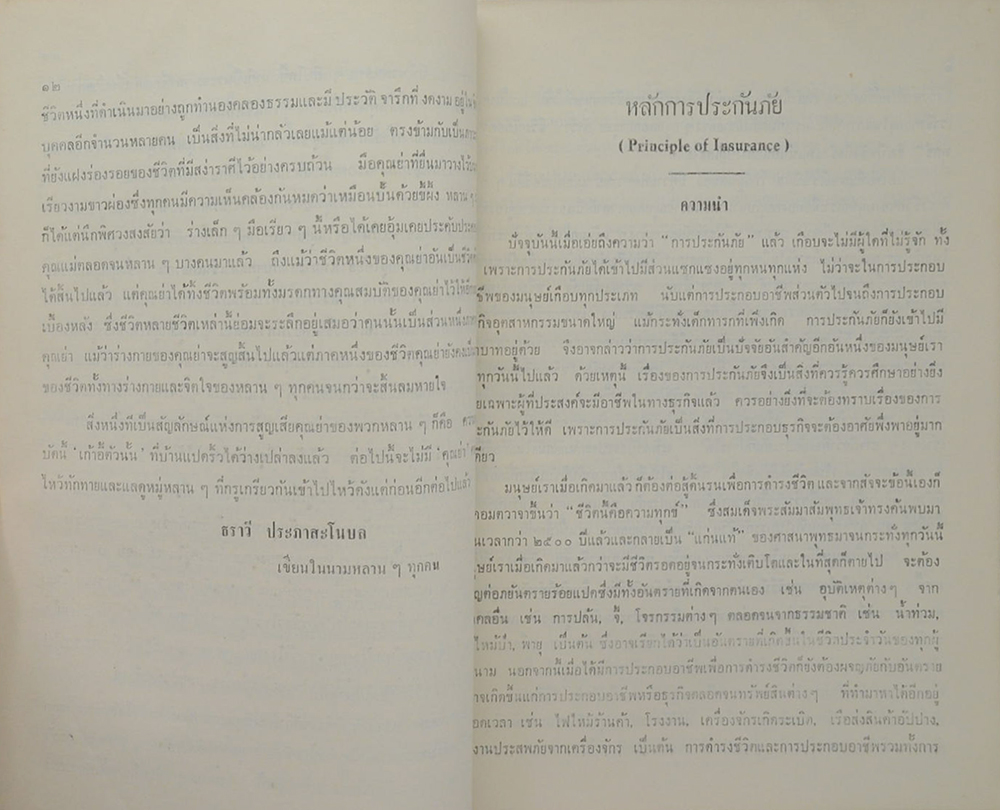 ๑๒
ชีวิตหนึ่งที่ดำเนินมาอย่างถูกทำนองคลองธรรมและมี ประวัติ จารึกที่ งดงาม อยู่ใน
บุคคลอีกจำนวนหลายคน เป็นสิ่งที่ไม่น่ากลัวเลยแม้แต่น้อย ตรงข้ามกับเป็น
ที่ยังแฝงร่องรอยของชีวิตที่มีสง่าราศีไว้อย่างครบถ้วน มือคุณย่าที่ยื่นมาวาง
เรียวงามขาวผ่องซึ่งทุกคนมีความเห็นคล้องกันหมดว่าเหมือนปั้นด้วยขี้ผึ้ง หลาน ๆ
ก็ได้แต่นึกพิศวงสงสัยว่า ร่างเล็ก ๆ มือเรียว ๆ นี้หรือได้เคยอุ้มเคยประคับประ
คุณแม่ตลอดจนหลาน ๆ บางคนมาแล้ว ถึงแม้ว่าชีวิตหนึ่งของคุณย่าอันเป็นชีวิต
ได้สิ้นไปแล้ว แต่คุณย่าได้ทิ้งชีวิตพร้อมทั้งมรดกทางคุณสมบัติของคุณย่าไว้ให้
เบื้องหลัง ซึ่งชีวิตหลายชีวิตเหล่านี้ย่อมจะระลึกอยู่เสมอว่าตนนั้นเป็นส่วนหนึ่ง
คุณย่า แม้ว่าร่างกายของคุณย่าจะสูญสิ้นไปแล้วแต่ภาคหนึ่งของชีวิตคุณย่ายังคง
ของชีวิตทั้งทางร่างกายและจิตใจของหลาน ๆ ทุกคนจนกว่าจะสิ้นลมหายใจ
สิ่งหนึ่งที่เป็นสัญลักษณ์แห่งการสูญเสียคุณย่าของพวกหลาน ๆ ก็คือ
บัดนี้ ‘เก้าอี้ตัวนั้น’ ที่บ้านแปดริ้วได้ว่างเปล่าลงแล้ว ต่อไปนี้จะไม่มี ‘คุณย่า’
ไหว้ทักทายและแลดูหมู่หลาน ๆ ที่กรูเกรียวกันเข้าไปไหว้ดังแต่ก่อนอีกต่อไปแล้ว
ธราวี ประภาสะโนบล
เขียนในนามหลาน ๆ ทุกคน
หลักการประกันภัย
( Principle of Insurance )
ความนำ
ปัจจุบันนี้เมื่อเอ่ยถึงความว่า “การประกันภัย” แล้ว เกือบจะไม่มีผู้ใดที่ไม่รู้จัก ทั้ง
เพราะการประกันภัยได้เข้าไปมีส่วนแซกแซงอยู่ทุกหนทุกแห่ง ไม่ว่าจะในการประกอบ
ชีพของมนุษย์เกือบทุกประเภท นับแต่การประกอบอาชีพส่วนตัวไปจนถึงการประกอบ
กิจอุตสาหกรรมขนาดใหญ่ แม้กระทั่งเด็กทารกที่เพิ่งเกิด การประกันภัยก็ยังเข้าไปมี
บาทอยู่ด้วย จึงอาจกล่าวว่าการประกันภัยเป็นปัจจัยอันสำคัญอีกอันหนึ่งของมนุษย์เรา
ทุกวันนี้ไปแล้ว ด้วยเหตุนี้ เรื่องของการประกันภัยจึงเป็นสิ่งที่ควรรู้ควรศึกษาอย่างยิ่ง
ยเฉพาะผู้ที่ประสงค์จะมีอาชีพในทางธุรกิจแล้ว ควรอย่างยิ่งที่จะต้องทราบเรื่องของการ
ะกันภัยไว้ให้ดี เพราะการประกันภัยเป็นสิ่งที่การประกอบธุรกิจจะต้องอาศัยพึ่งพาอยู่มาก
เดียว
มนุษย์เราเมื่อเกิดมาแล้ว ก็ต้องต่อสู้ดิ้นรนเพื่อการดำรงชีวิต และจากสัจจะข้อนี้เองก็
ตอมตวาจาขึ้นว่า “ชีวิตนี้คือความทุกข์” ซึ่งสมเด็จพระสัมมาสัมพุทธเจ้าทรงค้นพบมา
นเวลากว่า ๒๕๐๐ ปีแล้วและกลายเป็น “แก่นแท้” ของศาสนาพุทธมาจนกระทั่งทุกวันนี้
นุษย์เราเมื่อเกิดมาแล้วกว่าจะมีชีวิตรอดอยู่จนกระทั่งเติบโตและในที่สุดก็ตายไป จะต้อง
ญต่อภยันตรายร้อยแปดซึ่งมีทั้งอันตรายที่เกิดจากตนเอง เช่น อุบัติเหตุต่าง ๆ จาก
คลอื่น เช่น การปล้น, จี้, โจรกรรมต่าง ๆ ตลอดจนจากธรรมชาติ เช่น น้ำท่วม,
ไหม้ป่า, พายุ เป็นต้น ซึ่งอาจเรียกได้ว่าเป็นอันตรายที่เกิดขึ้นในชีวิตประจำวันของทุกผู้
นาม นอกจากนี้เมื่อได้มีการประกอบอาชีพเพื่อการดำรงชีวิตก็ยังต้องผจญภัยกับอันตราย
าจเกิดขึ้นแก่การประกอบอาชีพหรือธุรกิจตลอดจนทรัพย์สินต่าง ๆ ที่ทำมาหาได้อีกอยู่
อดเวลา เช่น ไฟไหม้ร้านค้า, โรงงาน, เครื่องจักรเกิดระเบิด, เรือส่งสินค้าอัปปาง,
งานประสพภัยจากเครื่องจักร เป็นต้น การดำรงชีวิตและการประกอบอาชีพรวมทั้งการ